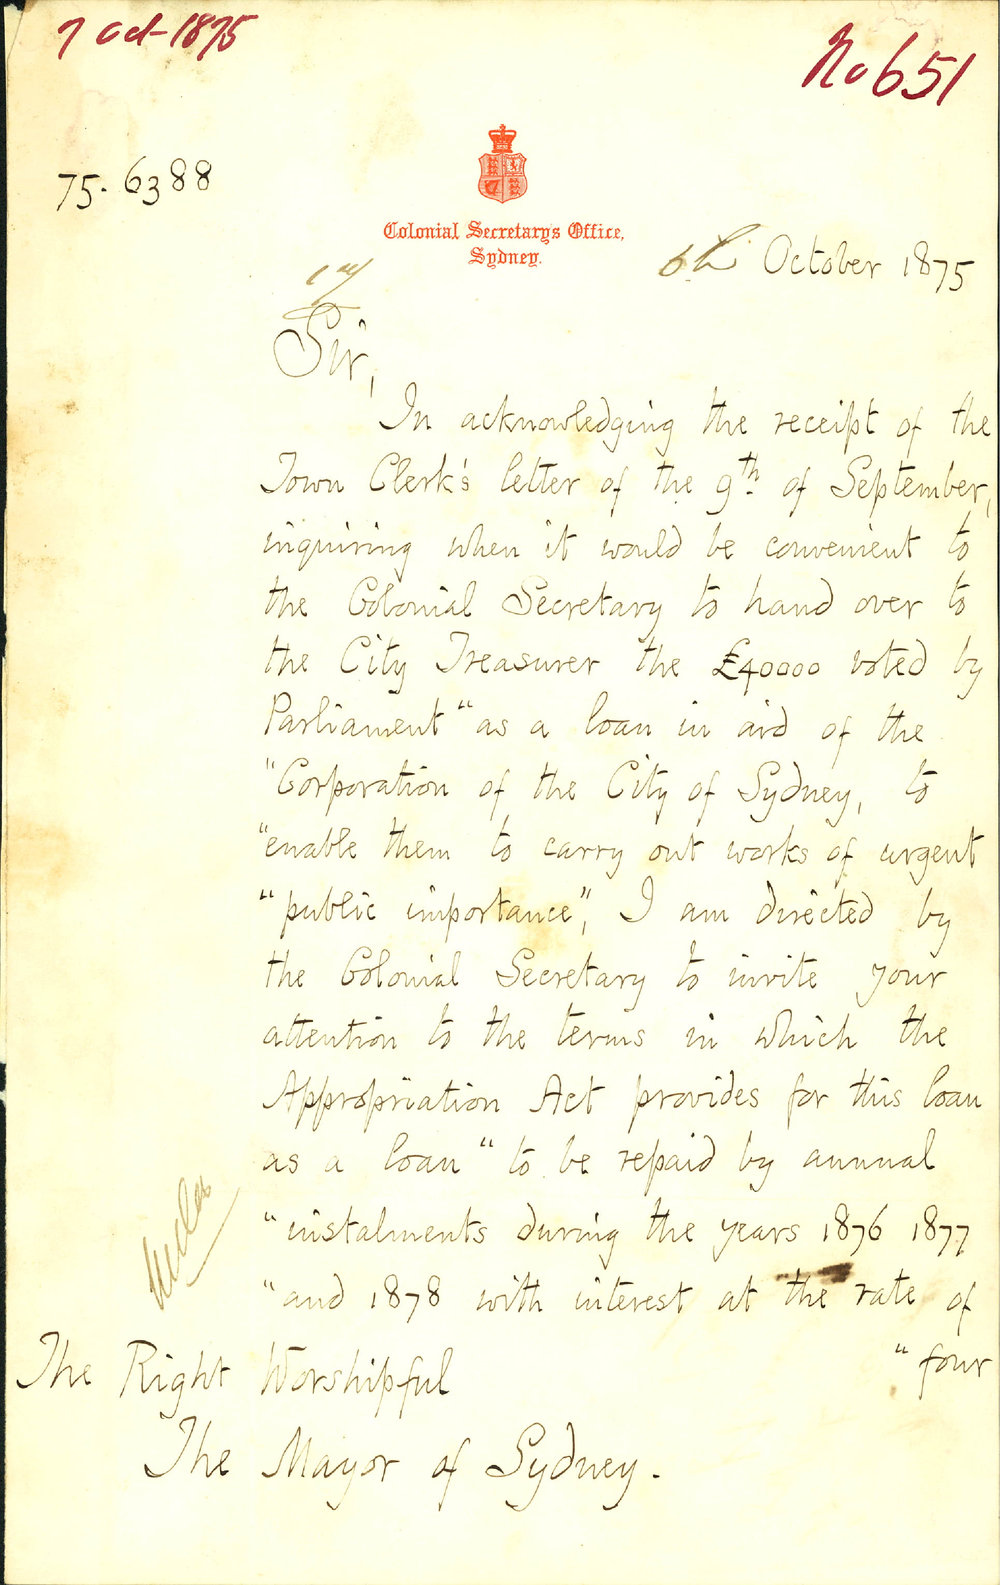 7 Oct 1875
No 651
75. 6388
Colonial Secretary's Office,
Sydney.
6th October 1875
Sir,
In acknowledging the receipt of the
Town Clerk's letter of the 9th of September,
inquiring when it would be convenient to
the Colonial Secretary to hand over to
the City Treasurer the £40000 voted by
Parliament "as a loan in aid of the
"Corporation of the City of Sydney, to
"enable them to carry out works of urgent
"public importance", I am directed by
the Colonial Secretary to invite your
attention to the terms in which the
Appropriation Act provides for this loan
as a loan "to be repaid by annual
"instalments during the years 1876 1877
"and 1878 with interest at the rate of
"four
The Right Worshipful
The Mayor of Sydney.